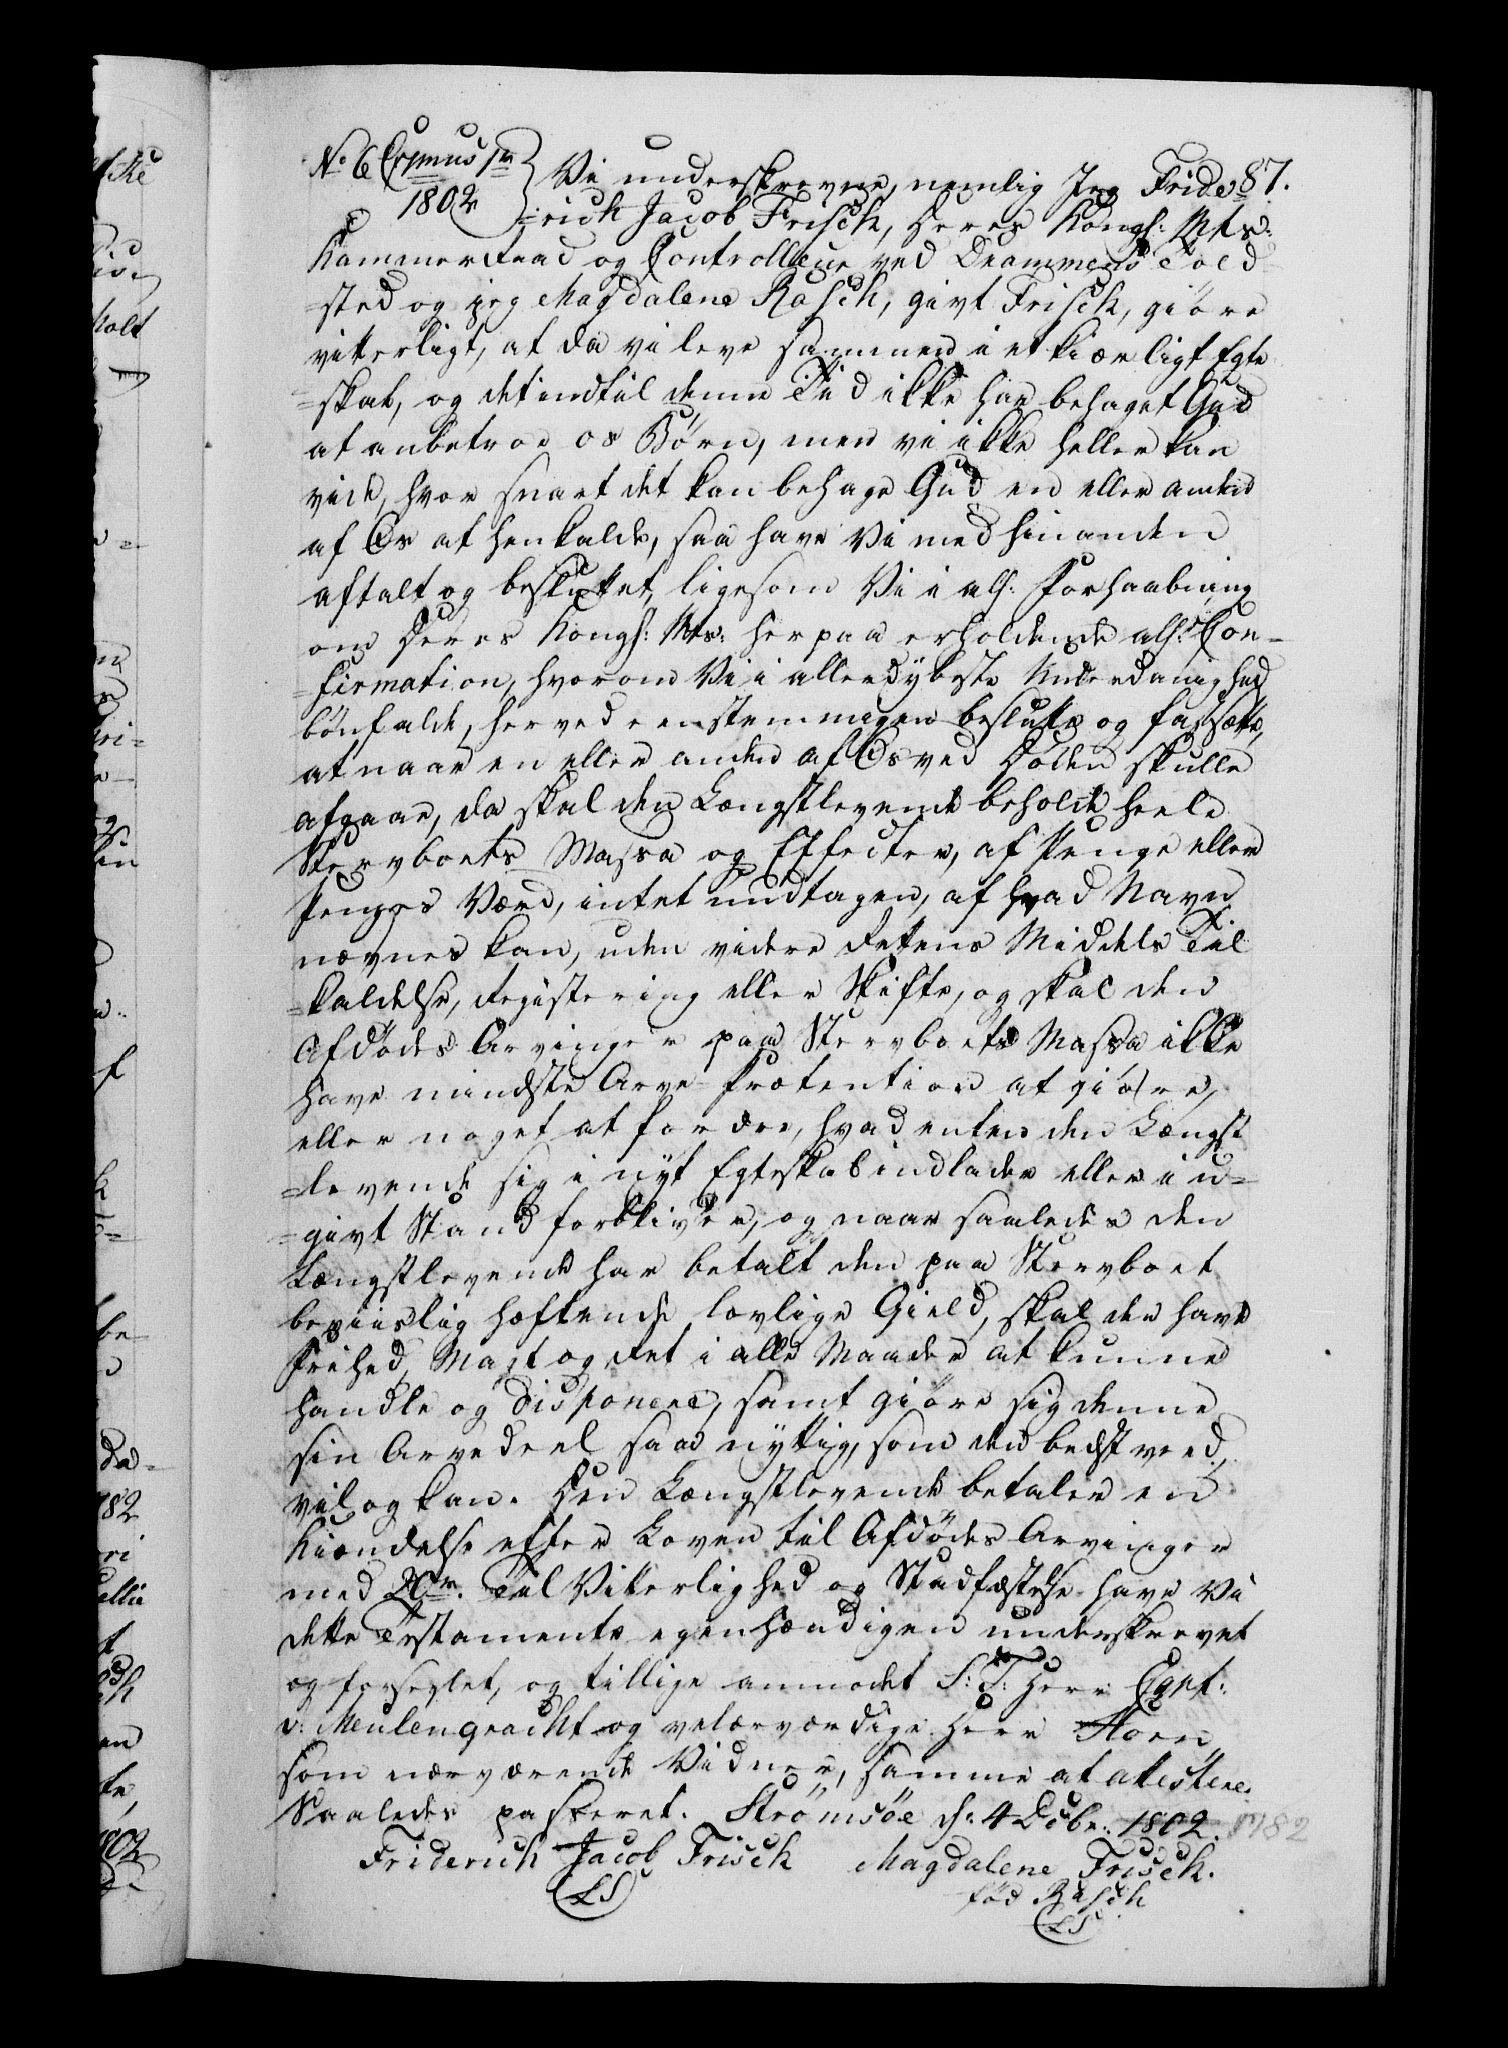 87.
No 6 Cismus 1m
1802
Vi underskrevne, nemlig Jeg Fride-
=rich Jacob Frisch, Deres Kongl: Mts:
Kammerraad og Controlleur ved Drammens Told
=sted og jeg Magdalena Rasch, givt Frisch, giöre
vitterligt, at da vi leve sammen i et kiærligt Egte
=skab, og det indtil denne Tid ikke har behaget Gud
at anbetroe os Børn, men vi ikke heller kan
vide, hvor snart det kan behage Gud en eller anden
af Os at henkalde, saa have Vi med hinanden
aftalt og besluttet, ligesom Vi i all: Forhaabning
om Deres Kongl: Mts: herpaa erholdende all: Con=
=firmation, hvorom Vi i allerdybeste Underdanighed
bönfalde, herved eenstemmigen beslutte og fastsætte,
at naar en eller anden af Os ved Döden skulle
afgaae, da skal den Længstlevende beholde heele
Stervboets Massa og Effecter, af Penge eller
Penges Værd, intet undtagen, af hvad Navn
nævnes kan, uden videre Rettens Middels Til
=kaldelse, Registering eller Skifte, og skal den
Afdödes Arvinger paa Stervboets Massa ikke
have mindste Arve-Prætention at giöre,
eller noget at fordre, hvad enten den Længst
=levende sig i nyt Egteskab indlader eller i u=
=givt Stand forbliver, og naar saaledes den
Længstlevende har betalt den paa Stervboet
beviislig hæftende lovlige Gield, skal den have
Frihed, Magt og Ret i alle Maader at kunne
handle og disponere, samt giöre sig denne
sin Arvedeel saa nyttig, som den bedst veed,
vil og kan. Den Længstlevende betaler en
Kiendelse efter Loven til Afdödes Arvinger
med 20 Til Vitterlighed og Stadfæstelse have Vi
dette Testamente egenhændigen underskrevet
og forseglet, og tillige anmodet S: T: Herr Capt:
v: Meulengracht og velærværdige Herr Horn
som nærværende Vidner, samme at attestere.
Saaledes passeret. Strömsöe d: 4 Dcbr: 1802.
Friderich Jacob Frisch Magdalene Frisch.
föd Rasch
LS
LS